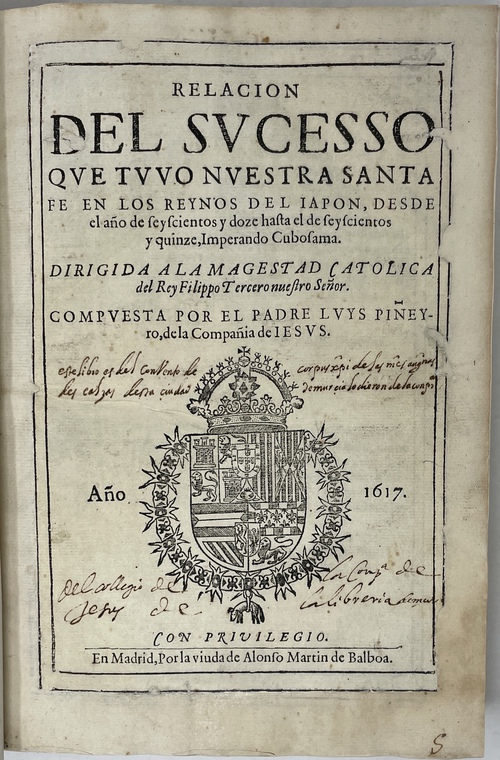 RELACION
DEL SVCESSO
QVE TVVO NVESTRA SANTA
FE EN LOS REYNOS DEL IAPON, DESDE
el año de ſeyſcientos y doze haſta el de ſeyſcientos
y quinze, Imperando Cuboſama.
DIRIGIDA A LA MAGESTAD CATOLICA
del Rey Filippo Tercero nueſtro Señor.
COMPVESTA POR EL PADRE LVYS PIÑEY-
ro, de la Compañia de IESVS.
este libro es del Conbento de corpus xpi de las
des calças desta ciudad de murcia
Año 1617.
del collegio de la Compª de
Jesus de
CON PRIVILEGIO.
En Madrid, Por la viuda de Alonſo Martin de Balboa.
S